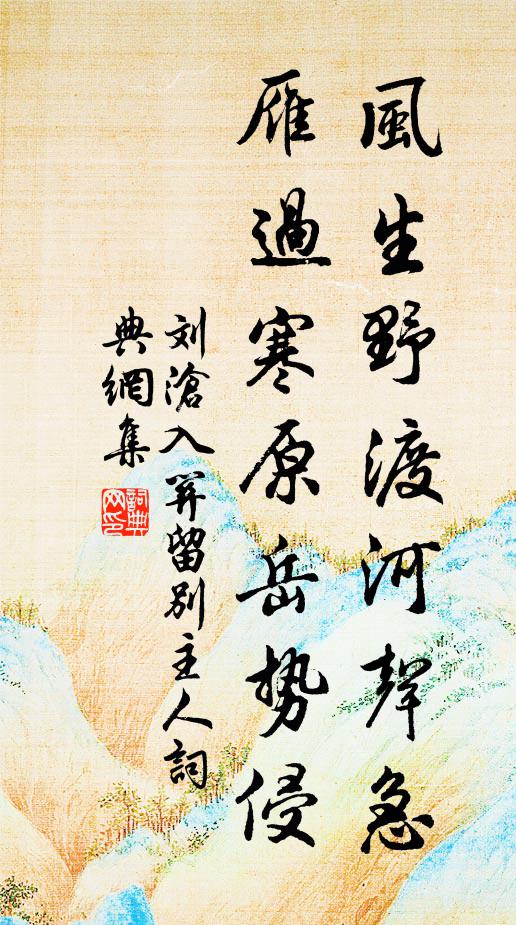 風生野渡河聲急
雁過寒原岳势侵
刘滄入关留别主人詞
典網集
詞典網印